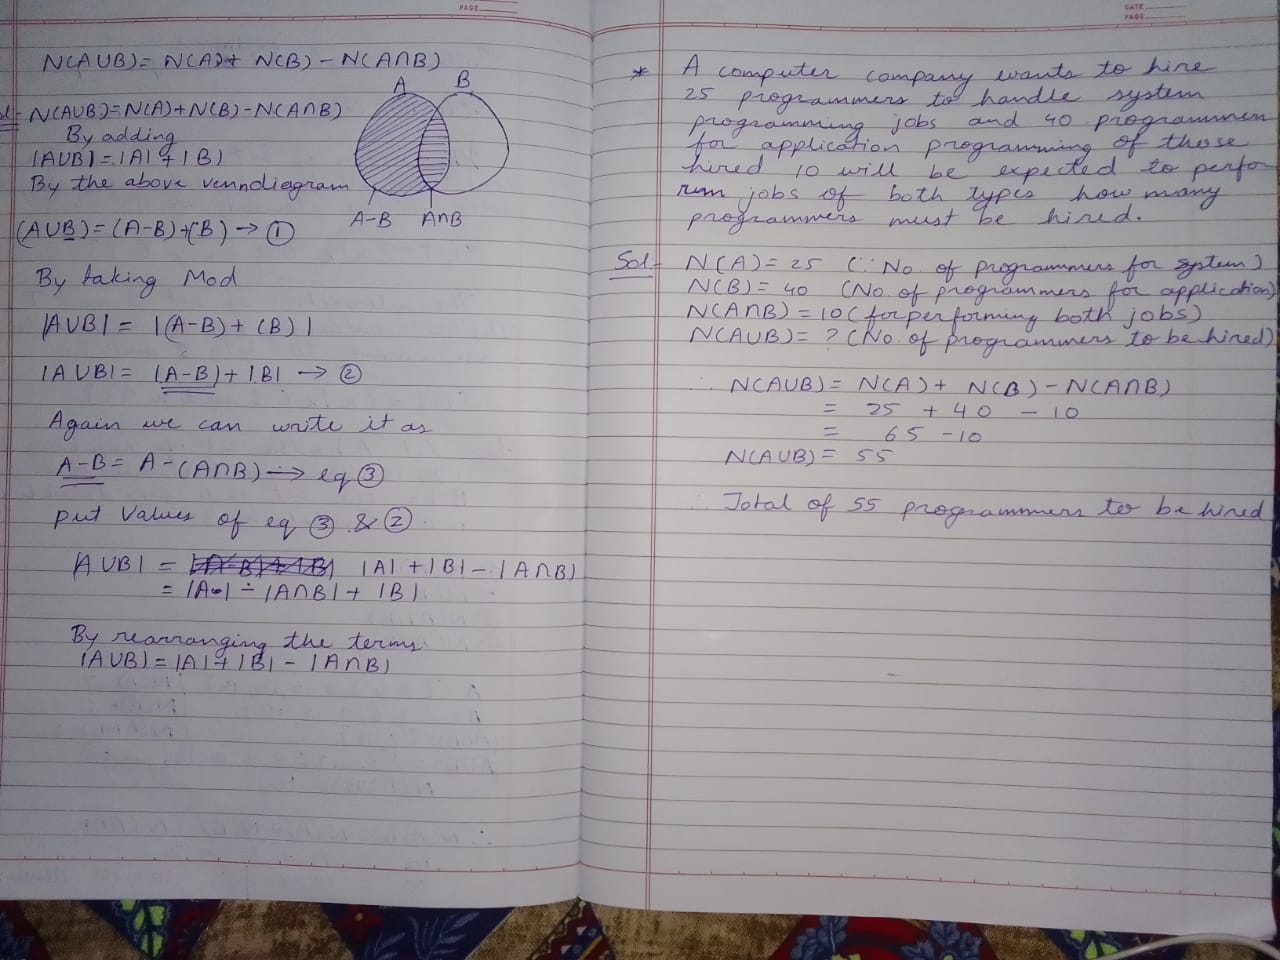 PAGE
N(AUB)= N(A)+ N(B) - N(A∩B)
N(AUB)=N(A)+N(B)-N(A∩B)
By adding
|AUB|=|A|+|B|
By the above venndiagram
A
B
A-B
A∩B
(AUB)=(A-B)+(B) → ①
By taking Mod
|AUB| = |(A-B)+(B)|
|AUB|= |A-B|+|B| → ②
Again we can write it as
A-B= A-(A∩B) → eq ③
put values of eq ③ & ②
AUB| = |A|+|B|-|A∩B|
= |A| - |A∩B|+ |B|
By rearranging the terms
|AUB|=|A|+|B| - |A∩B|
DATE
PAGE
* A computer company wants to hire
25 programmers to handle system
programming jobs and 40 programmers
for application programming of those
hired 10 will be expected to perfo
rm jobs of both types how many
programmers must be hired.
Sol- N(A)= 25 (∵ No. of programmers for system)
N(B)= 40 (No of programmers for application)
N(A∩B) = 10 (for performing both jobs)
N(AUB)= ? (No. of programmers to be hired)
∴ N(AUB)= N(A)+ N(B)-N(A∩B)
= 25 + 40 - 10
= 65 -10
N(AUB)= 55
∴ Total of 55 programmers to be hired